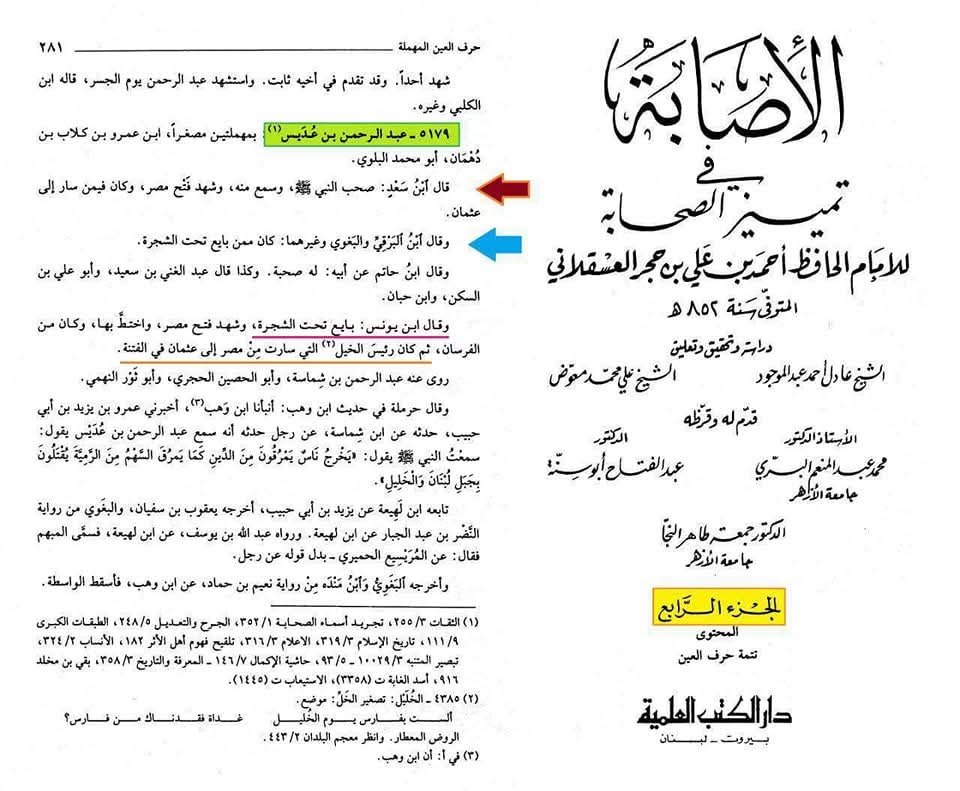 الإصابة
في
تمييز الصحابة
للإمام الحافظ أحمد بن علي بن حجر العسقلاني
المتوفى سنة ٨٥٢ هـ
دراسة وتحقيق وتعليق
الشيخ عادل أحمد عبد الموجود الشيخ علي محمد معوض
قدم له وقرظه
الأستاذ الدكتور الدكتور
محمد عبد المنعم البري عبد الفتاح أبو سنة
جامعة الأزهر
الدكتور جمعة طاهر النجا
جامعة الأزهر
الجزء الرابع
المحتوى
تتمة حرف العين
دار الكتب العلمية
بيروت - لبنان
حرف العين المهملة ٢٨١
شهد أحداً. وقد تقدم في أخيه ثابت. واستشهد عبد الرحمن يوم الجسر، قاله ابن
الكلبي وغيره.
٥١٧٩ - عبد الرحمن بن عُدَيس(١): بمهملتين مصغراً، ابن عمرو بن كلاب بن
دُهْمَان، أبو محمد البلوي.
قال ٱبْنُ سَعْدٍ: صحب النبي ﷺ، وسمع منه، وشهد فَتْح مصر، وكان فيمن سار إلى
عثمان.
وقال ٱبْنُ ٱلبَرْقِيِّ والبَغوي وغيرهما: كان ممن بايع تحت الشجرة.
وقال ابنُ حاتم عن أبيه: له صحبة. وكذا قال عبد الغني بن سعيد، وأبو علي بن
السكن، وابن حبان.
وقال ابن يونس: بايع تحت الشجرة، وشهد فتح مصر، واختطَّ بها، وكان من
الفرسان، ثم كان رئيسَ الخيل(٢) التي سارت مِنْ مصر إلى عثمان في الفتنة.
روى عنه عبد الرحمن بن شِماسة، وأبو الحصين الحجري، وأبو ثَوْر النهمي.
وقال حرملة في حديث ابن وهب: أنبأنا ابن وَهب(٣)، أخبرني عمرو بن يزيد بن أبي
حبيب، حدثه عن ابن شِماسة، عن رجل حدثه أنه سمع عبد الرحمن بن عُدَيْس يقول:
سمعْتُ النبي ﷺ يقول: «يَخْرج نَاسٌ يَمْرقُونَ مِنَ الدِّينِ كَمَا يَمرقُ السَّهْمُ مِنَ الرَّمِيَّةِ يُقْتَلُونَ
بِجَبَلِ لُبْنَانَ وَالْخَلِيلِ».
تابعه ابن لَهِيعة عن يزيد بن أبي حبيب، أخرجه يعقوب بن سفيان، والبغَوي من رواية
النَّضْر بن عبد الجبار عن ابن لهيعة. ورواه عبد الله بن يوسف، عن ابن لهيعة، فسمَّى المبهم
فقال: عن المُرَيْسيع الحميري ـ بدل قوله عن رجل.
وأخرجه ٱلبَغَوِيُّ وَٱبْنُ مَنْدَه مِنْ رواية نعيم بن حماد، عن ابن وهب، فأسقط الواسطة.
(١) الثقات ٢٥٥/٣، تجريد أسماء الصحابة ٣٥٢/١، الجرح والتعديل ٢٤٨/٥، الطبقات الكبرى
١١١/٩، تاريخ الإسلام ٣١٩/٣، الاعلام ٣١٦/٣، تلقيح فهوم أهل الأثر ١٨٢، الأنساب ٣٢٤/٢،
تبصير المتنبه ١٠٠٢٩/٣ ـ ٩٣/٥، حاشية الإكمال ١٤٦/٧ ـ المعرفة والتاريخ ٣٥٨/٣، بقي بن مخلد
٩١٦، أسد الغابة ت (٣٣٥٨)، الاستيعاب ت (١٤٤٥).
(٢) ٤٣٨٥ ـ الخُلَيْل: تصغير الخَلّ: موضع.
ألست بفارس يوم الخُليل غداة فقدناك من فارس؟
الروض المعطار. وانظر معجم البلدان ٤٤٣/٢.
(٣) في أ: أن ابن وهب.